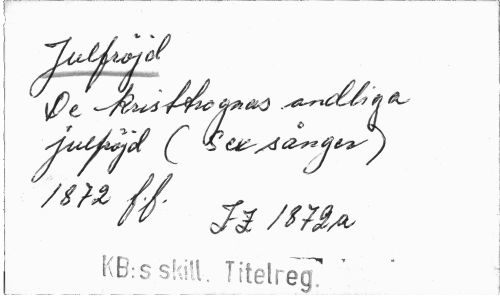 Julfröjd
De kristtrognas andliga
julfröjd (Sex sånger)
1872 f.f.
FZ 1872a
KB:s skill. Titelreg.